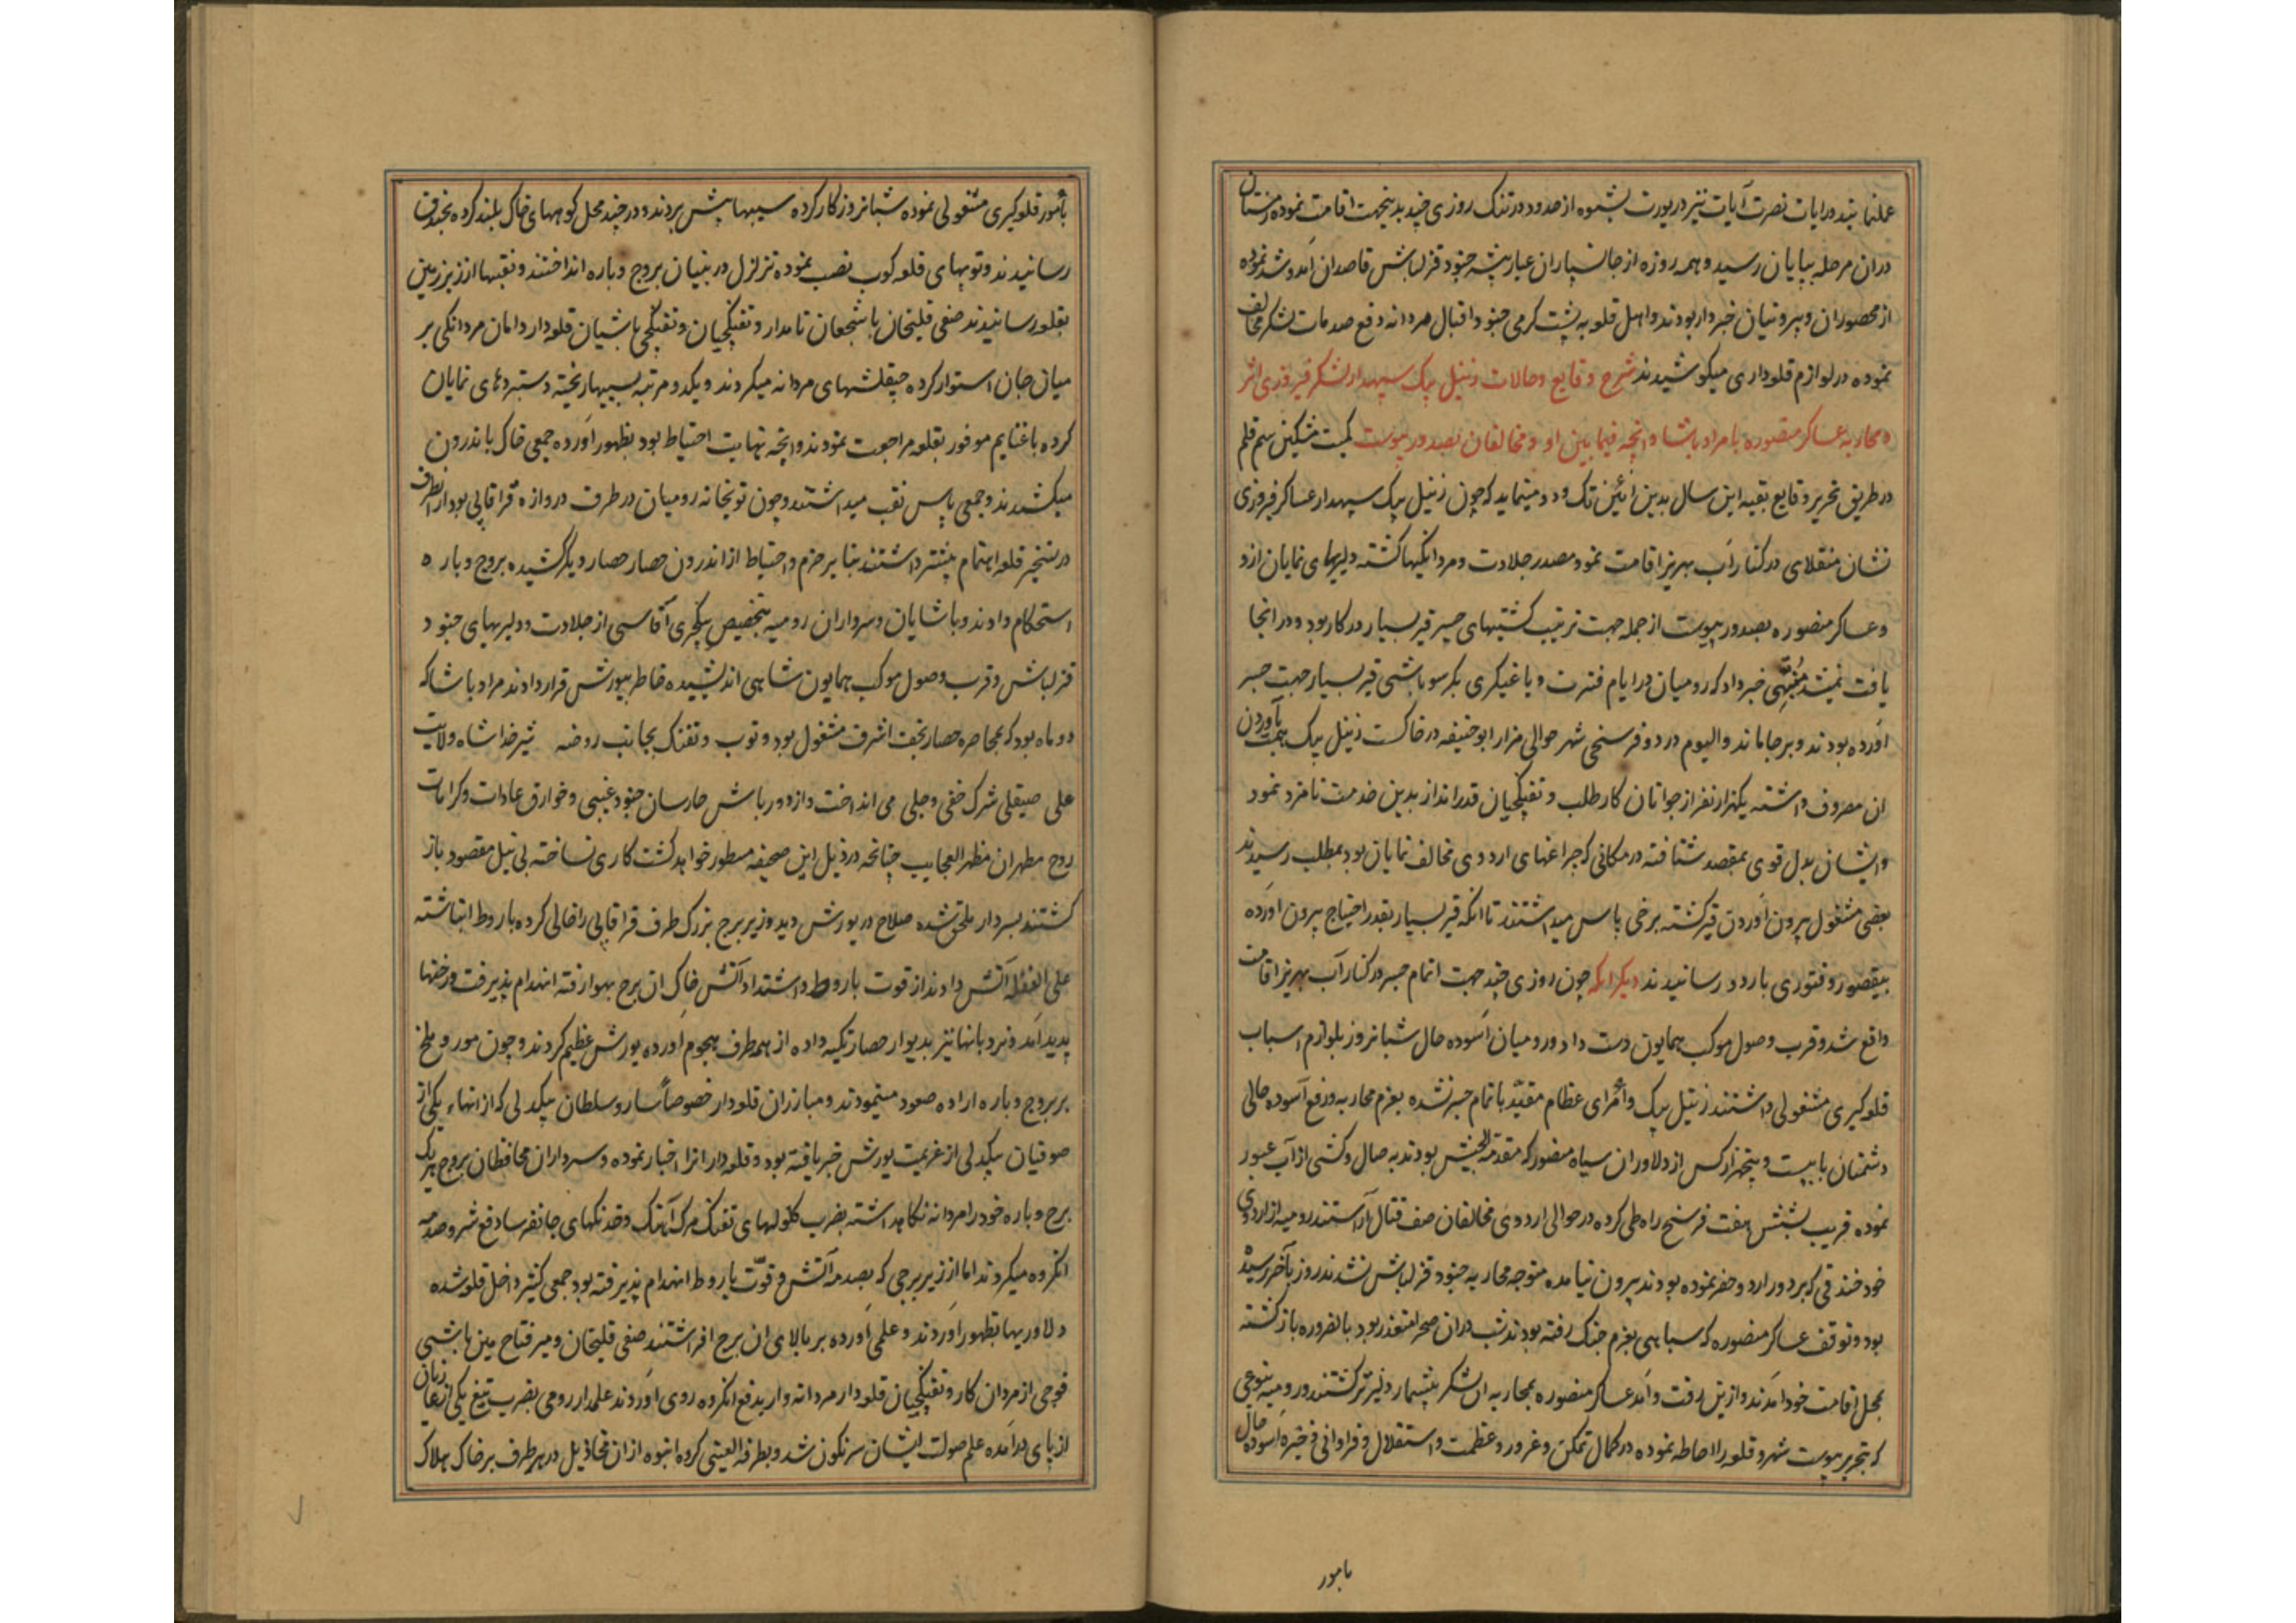 عملنمایند و رایات نصرت آیات نیز در یورت پشتوه از حدود درتنک روزی چند بدینجهت اقامت نموده زمستان
در ان مرحله بپایان رسید و همه روزه از جانسپاران عیار پیشه جنود قزلباش قاصدان آمد و شد نموده
از محصوران و بیرونیان خبردار بودند و اهل قلعه به پشت کرمی جنود اقبال مردانه دفع صدمات لشکر مخالف
نموده در لوازم قلعه داری میکوشیدند شرح وقایع و حالات زنیل بیک سپهدار لشکر فیروزی اثر
و محاربه عساکر منصوره با مراد پاشا و انچه فیمابین او و مخالفان بصدور پیوست کمیت مشکین سم قلم
در طریق تحریر وقایع بقیه این سال بدین ائین تک و دو مینماید که چون زنیل بیک سپهدار عساکر فیروزی
نشان منقلای در کنار آب بهریز اقامت نمود مصدر جلادت و مردانکیها کشته دلیریهای نمایان ازو
و عساکر منصوره بصدور پیوست از جمله جهت ترتیب کشتیهای جسر قیر بسیار در کار بود و در انجا
یافت نمیشد منهیی خبر داد که رومیان در ایام فترت و یاغیکری بکر سوباشی قیر بسیار جهت جسر
آورده بودند و بر جا مانده و الیوم در دو فرسخی شهر حوالی مزار ابوحنیفه در خاکست زنیل بیک همت بآوردن
ان مصروف داشته یکهزار نفر از جوانان کارطلب و تفنکچیان قدرانداز بدین خدمت نامزد نمود
و ایشان بدل قوی بمقصد شتافته در مکانی که چراغهای اردوی مخالف نمایان بود بمطلب رسیدند
بعضی مشغول بیرون آوردن قیر کشته برخی پاس میداشتند تا انکه قیر بسیار بقدر احتیاج بیرون آورده
بیقصور و فتوری باردو رسانیدند دیکر انکه چون روزی چند جهت اتمام جسر در کنار آب بهریز اقامت
واقع شد و قرب وصول موکب همایون دست داد و رومیان آسوده حال شبانروز بلوازم اسباب
قلعه کیری مشغولی داشتند زنیل بیک و امرای عظام مقید باتمام جسر نشده بعزم محاربه و رفع آسوده حالی
دشمنان با بیست و پنجهزار کس از دلاوران سپاه منصور که مقدمة الجیش بودند به صال و کشتی از آب عبور
نموده قریب بشش هفت فرسخ راه طی کرده در حوالی اردوی مخالفان صف قتال آراستند رومیه از اردوی
خود خندقی که بر دور اردو حفر نموده بودند بیرون نیامده متوجه محاربه جنود قزلباش نشدند روز بآخر رسیده
بود و توقف عساکر منصوره که سپاهی بعزم جنک رفته بودند شب در ان صحرا متعذر بود بالضروره بازکشته
بمحل اقامت خود آمدند و ازین رفت و آمد عساکر منصوره بمحاربه ان لشکر بیشمار دلیرتر کشتند و رومیه بنوعی
که بتحریر پیوست شهر و قلعه را احاطه نموده در کمال تمکن و غرور و عظمت و استقلال و فراوانی ذخیره آسوده حال
بامور
بامور قلعه کیری مشغولی نموده شبانروز کار کرده سیبها پیش بردند و در چند محل کوههای خاک بلند کرده بخندق
رسانیدند و توپهای قلعه کوب نصب نموده تزلزل در بنیان بروج و باره انداختند و نقبها از زیر زمین
بقلعه رسانیدند صفی قلیخان با شجعان نامدار و تفنکچیان و تفنکچی باشیان قلعه دار دامان مردانکی بر
میان جان استوار کرده چپقلشهای مردانه میکردند و یکدو مرتبه بسیبها ریخته دستبردهای نمایان
کرده با غنایم موفور بقلعه مراجعت نمودند و انچه نهایت احتیاط بود بظهور آورده جمعی خاک باندرون
میکشیدند و جمعی پاس نقب میداشتند و چون توپخانه رومیان در طرف دروازه قراقاپی بود از انطرف
در تسخیر قلعه اهتمام بیشتر داشتند بنابر حزم و احتیاط از اندرون حصار حصار دیکر کشیده بروج و باره
استحکام دادند و پاشایان و سرداران رومیه بتخصیص ینکچری آقاسی از جلادت و دلیریهای جنود
قزلباش و قرب وصول موکب همایون شاهی اندیشیده خاطر بیورش قرار دادند مراد پاشا که
دو ماه بود که بمحاصره حصار نجف اشرف مشغول بود و توپ و تفنک بجانب روضه شیر خدا شاه ولایت
علی صیقلی شرک خفی و جلی می انداخت و از دورباش حارسان جنود غیبی و خوارق عادات و کرامات
روح مطهر ان مظهر العجایب چنانچه در ذیل این صحیفه مسطور خواهد کشت کاری نساخته بی نیل مقصود باز
کشتند بسردار ملحق شده صلاح در یورش دید و زیر برج بزرک طرف قراقاپی را خالی کرده باروط انباشته
علی الغفله آتش دادند از قوت باروط و اشتداد آتش خاک ان برج بهوا رفته انهدام پذیرفت و رخنها
پدید آمد و نردبانها نیز بدیوار حصار تکیه داده از همه طرف هجوم آورده یورش عظیم کردند و چون مور و ملخ
بر بروج و باره اراده صعود مینمودند و مبارزان قلعه دار خصوصاً سارو سلطان بیکدلی که از انهاء یکی از
صوفیان بیکدلی از عزیمت یورش خبر یافته بود و قلعه دارانرا اخبار نموده و سرداران محافظان بروج هر یک
برج و باره خود را مردانه نکاهداشته بضرب کلولهای تفنک مرک آهنک و خدنکهای جانفرسا دفع شر و صدمه
انکروه میکردند اما از زیر برجی که بصدمه آتش و قوّت باروط انهدام پذیرفته بود جمعی کثیر داخل قلعه شده
دلاوریها بظهور آوردند و علمی آورده بر بالای ان برج افراشتند صفی قلیخان و میر فتاح مین باشی
فوجی از مردان کار و تفنکچیان قلعه دار مردانه وار بدفع انکروه روی آوردند علمدار رومی بضرب تیغ یکی از غازیان
از پای درآمده علم صولت ایشان سرنکون شد و بطرفة العینی کرده انبوه از ان مخاذیل در هر طرف بر خاک هلاک